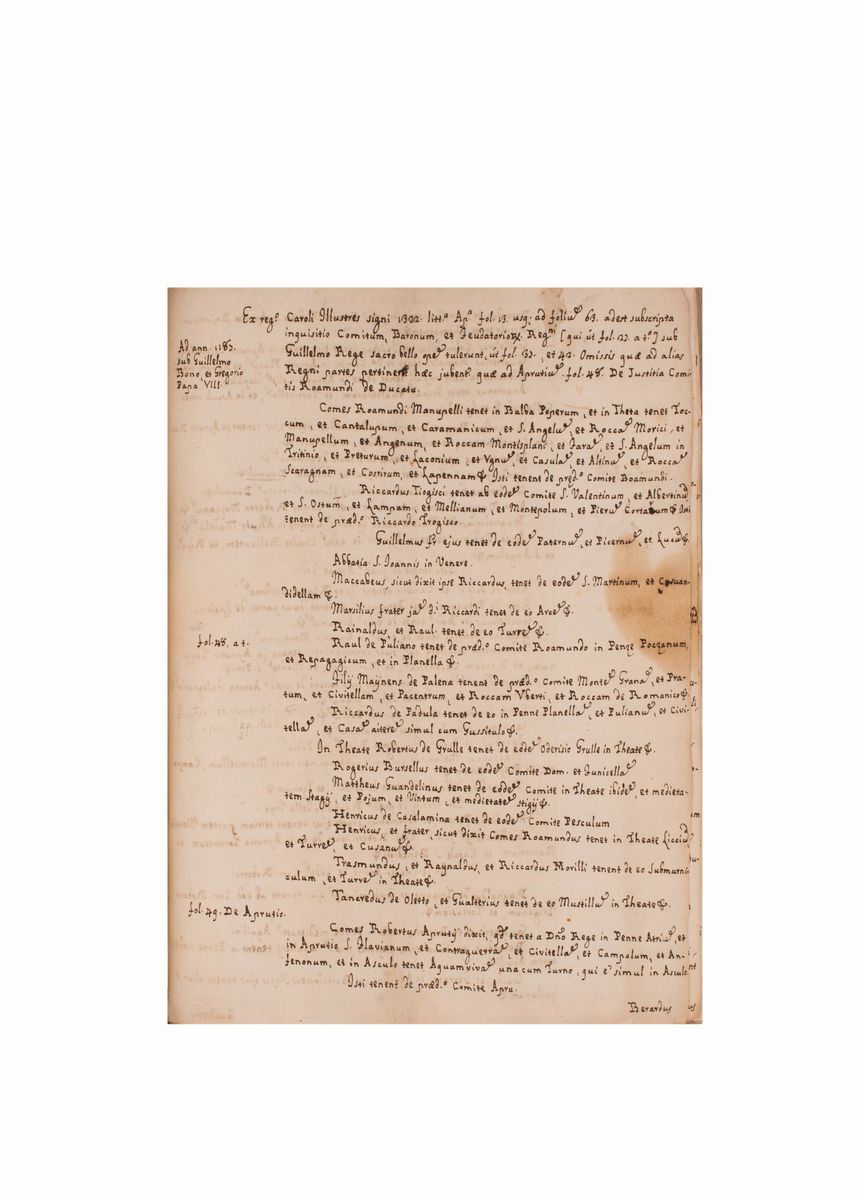 Ex reg.º Caroli Illustres signi 1322. litt.ª Ap.ª fol. 13. usq; ad foliu 63. adest subscripta
inquisitio Comitum, Baronum, et Feudatorior. Regni [qui út fol. 22. a t.º] sub
Ad ann. 1187.
sub Guillelmo
Bono, et Gregorio
Papa VIII.
Guillelmo Rege sacro bello ope tulerunt, út fol. 32., et 42. Omissis quæ ad alias
Regni partes pertinent hæc jubent quæ ad Aprutiu. fol. 48. De Justitia Comi-
tis Roamundi de Ducatu.
Comes Roamundi Manupelli tenet in Balba Poperum, et in Theta tenet Toc-
cum, et Cantalupum, et Caramanicum, et S. Angelu, et Rocca Morici, et
Manupellum, et Angenum, et Roccam Montisplani, et Fara, et S. Angelum in
Tritinio, et Preturum, et Laconium, et Vgnu, et Casula, et Altinu, et Rocca
Scaragnam, et Cosrirum, et Lapennam &. Isti tenent de pręd.º Comite Boamundi.
Riccardus Trogisci tenet ab eode Comite S. Valentinum, et Albertinu
et S. Ostum, et Lampam, et Mellianum, et Montepolum, et Pieru Cortanum & Isti
tenent de præd.º Riccardo Trogisco.
Guillelmus fr ejus tenet de eode Paternu, et Picernu, et Lucu &.
Abbatia S. Joannis in Venere.
Maccabeus, sicut dixit ipse Riccardus, tenet de eode S. Martinum, et Casuan-
didellam &.
Marsilius frater ja d.i Riccardi tenet de eo Arce &.
Rainaldus, et Raul tenet de eo Turre &.
fol. 48. a t.
Raul de Puliano tenet de præd.º Comite Roamundo in Penze Poczanum,
et Repagagicum, et in Planella &.
Filij Maÿnens. de Palena tenent de præd.º Comite Monte Grana, et Pra-
tum, et Civitellam, et Pacentrum, et Roccam Vberti, et Roccam de Romanico &.
Riccardus de Padula tenet de eo in Penne Planella, et Pulianu, et Civi-
tella, et Casa aitere simul cum Gussitulo &.
In Theate Robertus de Grulle tenet de eode Oderisio Grulle in Theate &.
Rogerius Bursellus tenet de eode Comite Dom. et Junicella
Mattheus Guandelinus tenet de eode Comite in Theate ibide, et medieta-
tem Stagij, et Pojum, et Vintum, et medietate Stigij &.
Henricus de Casalamina tenet de eode Comite Pesculum
Henricus, et frater, sicut dixit Comes Roamundus tenet in Theate Licciu
et Turre, et Cusanu &.
Trasmundus, et Raynaldus, et Riccardus Morilli tenent de eo Submurni-
culum, et Turre in Theate &.
Tancredus de Oletto, et Gualterius tenet de eo Mustillu in Theate &.
fol. 49. De Aprutio.
Comes Robertus Aprutij dixit, qd tenet a Dno Rege in Penne Atriu, et
in Aprutio S. Flavianum, et Contraguerra, et Civitella, et Campolum, et An-
fenonum, et in Asculo tenet Aguamviva una cum Turno, qui e simul in Asculo.
Isti tenent de præd.º Comite Apru.
Berardus